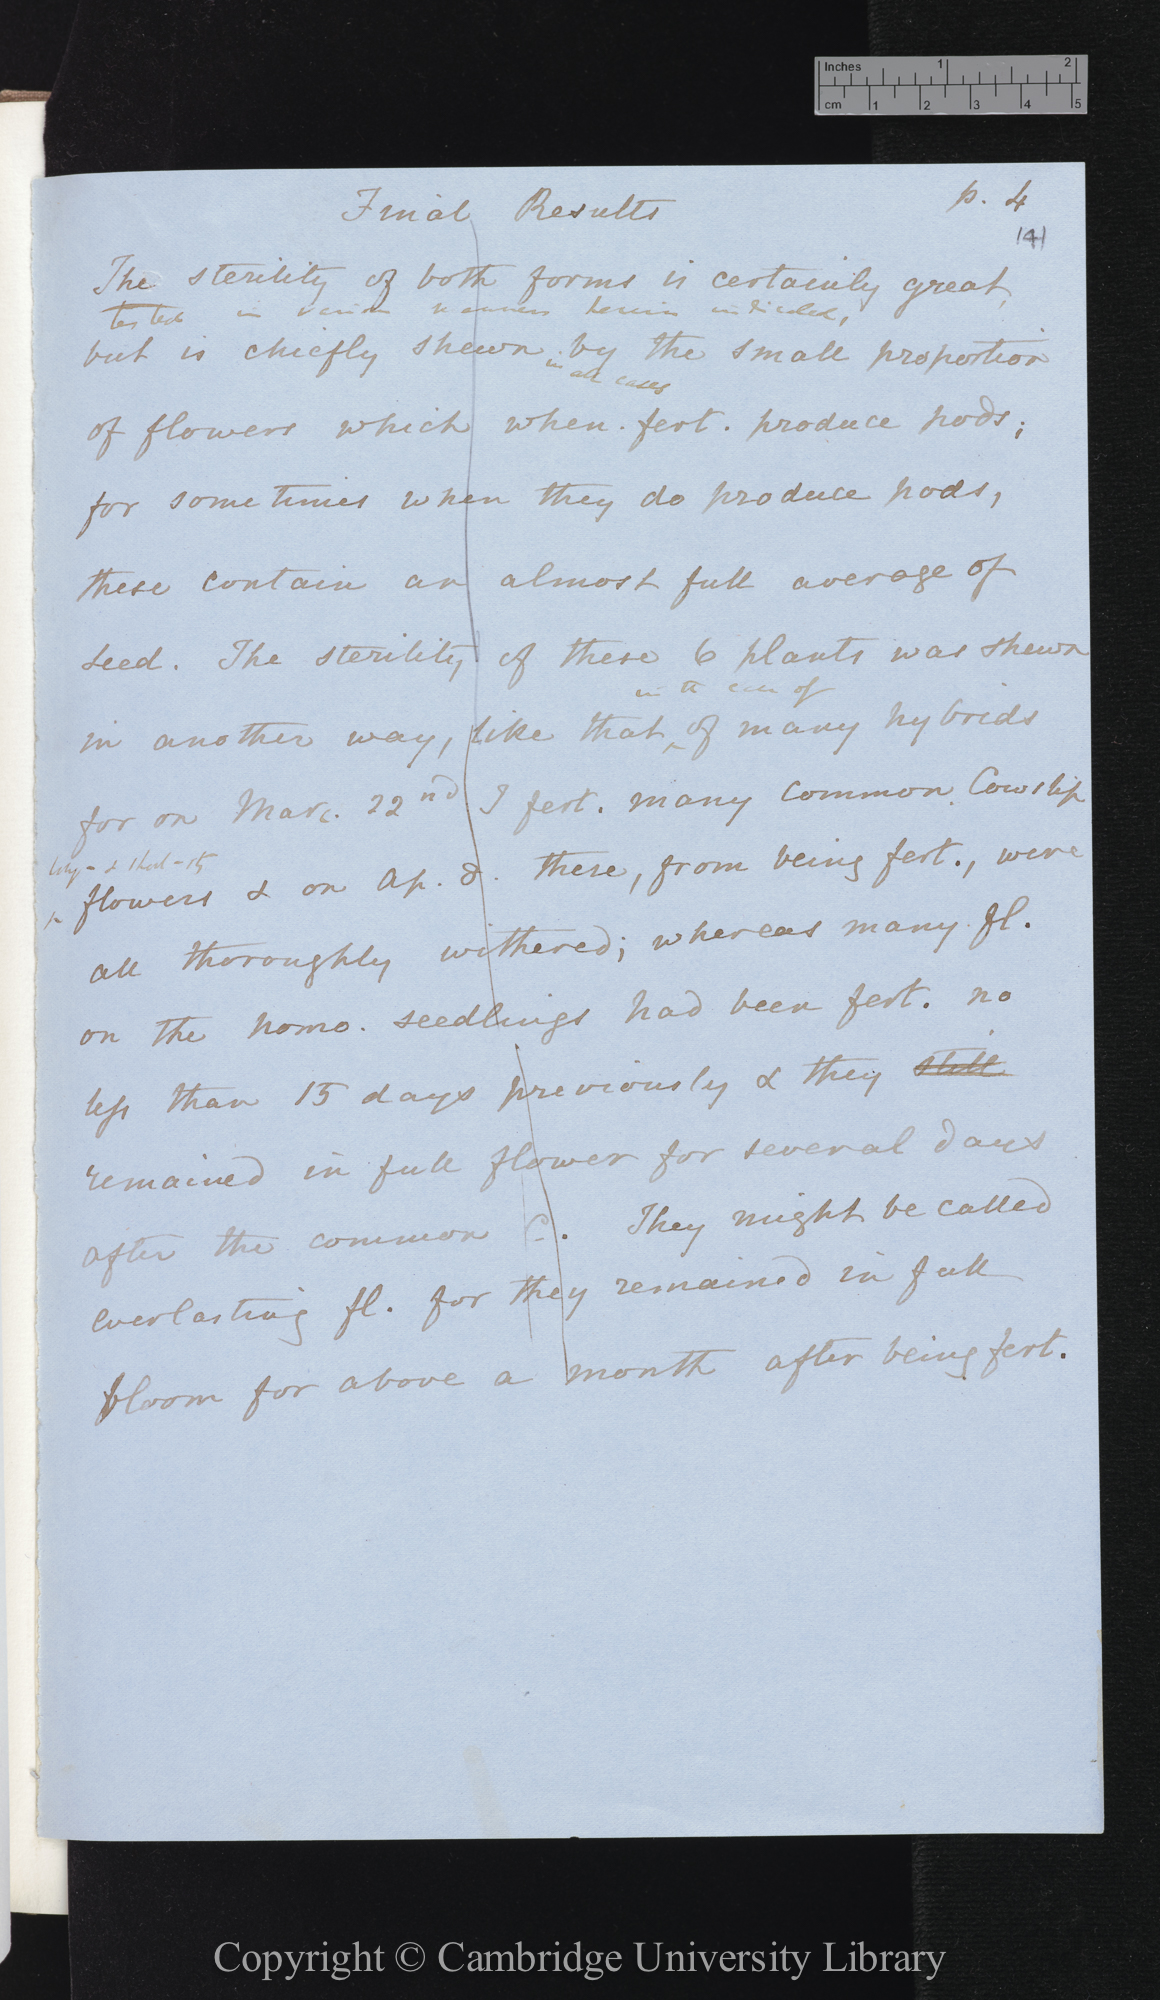 Inches 1 2
cm 1 2 3 4 5
Final Results p. 4
141
The sterility of both forms is certainly great,
tested in various manners herein indicated,
but is chiefly shewn by the small proportion
in all cases
of flowers which when fert. produce pods;
for sometimes when they do produce pods,
these contain an almost full average of
seed. The sterility of these 6 plants was shewn
in the case of
in another way, like that of many hybrids
for on Mar. 22nd I fert. many common Cowslip
long- & short-st
flowers & on Ap. 8. these, from being fert., were
all thoroughly withered; whereas many fl.
on the homo. seedlings had been fert. no
less than 15 days previously & they still
remained in full flower for several days
after the common C. They might be called
everlasting fl. for they remained in full
bloom for above a month after being fert.
Copyright © Cambridge University Library